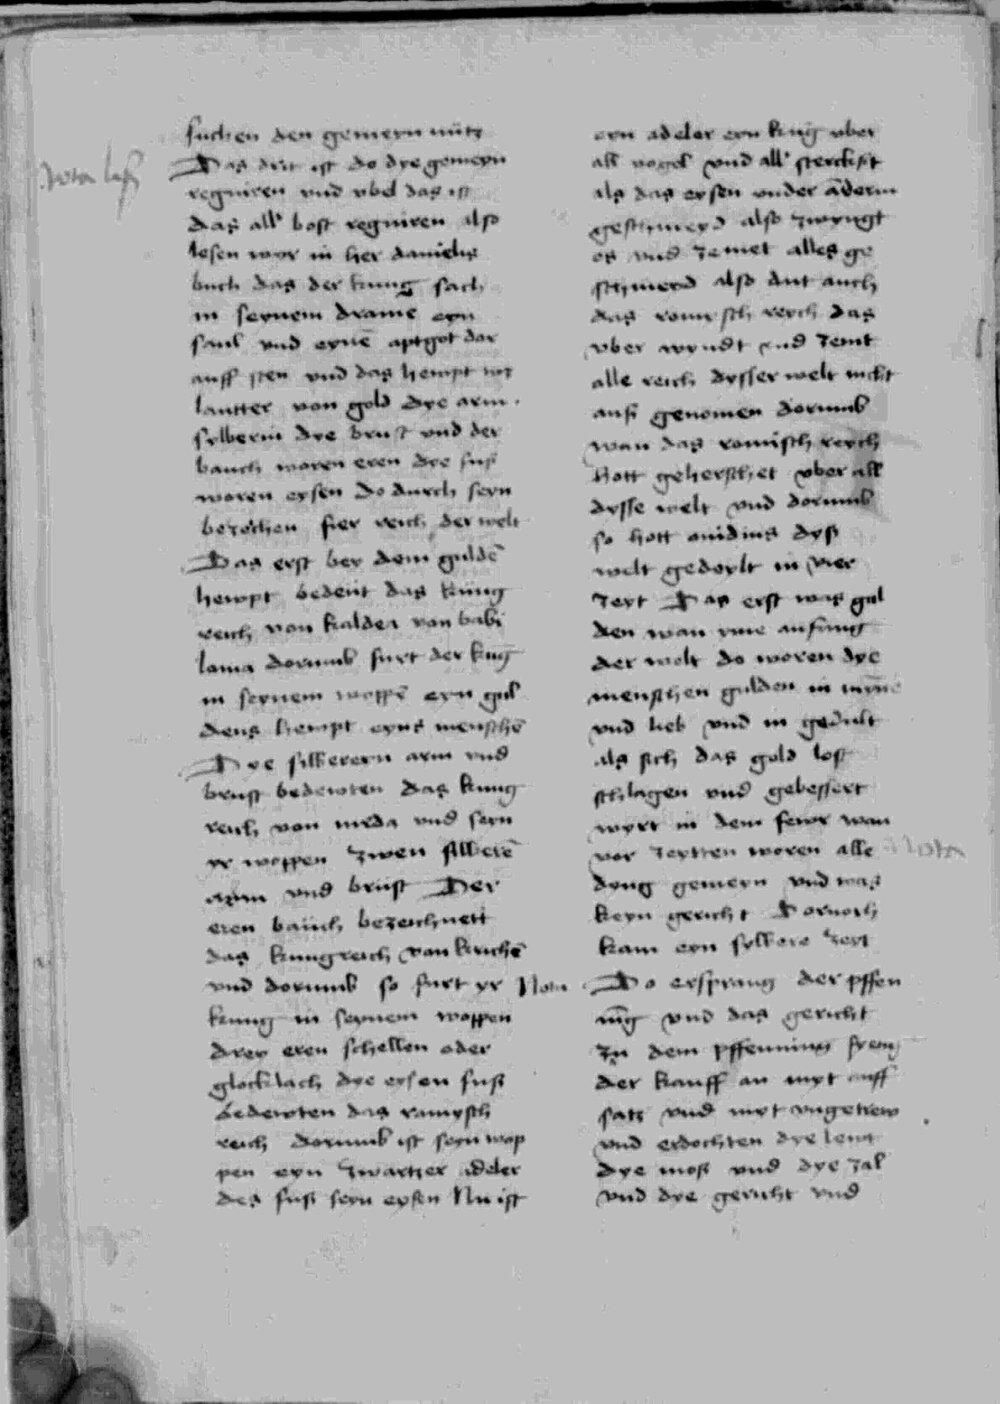 suchen den gemeyn nütz
Das drit ist do dye gemeyn
regniren vnd vbel das ist
das all bost regniren also
lesen wyr in her daniels
buch das der kunig sach
in seynem drame eyn
saul vnd eynē aptgot dar
auff sten vnd das hewpt
lautter von gold dye arm
sylberin dye brust vnd der
bauch woren eren dye fuß
woren eysen do durch seyn
bezechen fier reich der welt
Das erst bey dem guldē
hewpt bedeut das kunig
reich von kaldea von babi
lonia dorumb furt der kūg
in seynem woppē eyn gul
dens hewpt eyns menschē
Dye silberern arm vnd
brust bedewten das kunig
reich von meda vnd seyn
yr woppen zwen silberē
arm vnd brust Der
eren bauch bezeichnett
das kunigreich von krichē
vnd dorumb so furt yr
kunig in seynem woppen
drey eren schellen oder
glocklach dye eysen fuß
bedewten das romysch
reich dorumb ist seyn wop
pen eyn zwartzer adeler
des fuß seyn eysen Nu ist
eyn adeler eyn kunig vber
all vogel vnd all sterckist
als das eysen vnder andern
geschmeyd also zwyngt
es vnd zemet alles ge
schmeid also dut auch
das romysch reych das
vber wyndt vnd zemt
alle reich dysser welt nicht
auß genomen dorumb
wan das romisch reych
hott geherschet vber all
dysse welt vnd dorumb
so hott ouidius dyß
welt gedeylt in vier
zeyt Das erst was gul
den wan yme anfang
der welt do woren dye
menschen gulden in
vnd lieb vnd in gedult
als sich das gold lost
schlagen vnd gebessert
wyrt in dem fewr wan
vor zeytten woren alle
dyng gemeyn vnd was
keyn gericht Dornoch
kam eyn sylbere zeyt
Nota Do ersprang der pffen
nīg vnd das gericht
zu dem pffenning
der kauff an myt auff
satz vnd myt vngetrew
vnd erdochten dye lewt
dye moß vnd dye zal
vnd dye gericht vnd
Nota